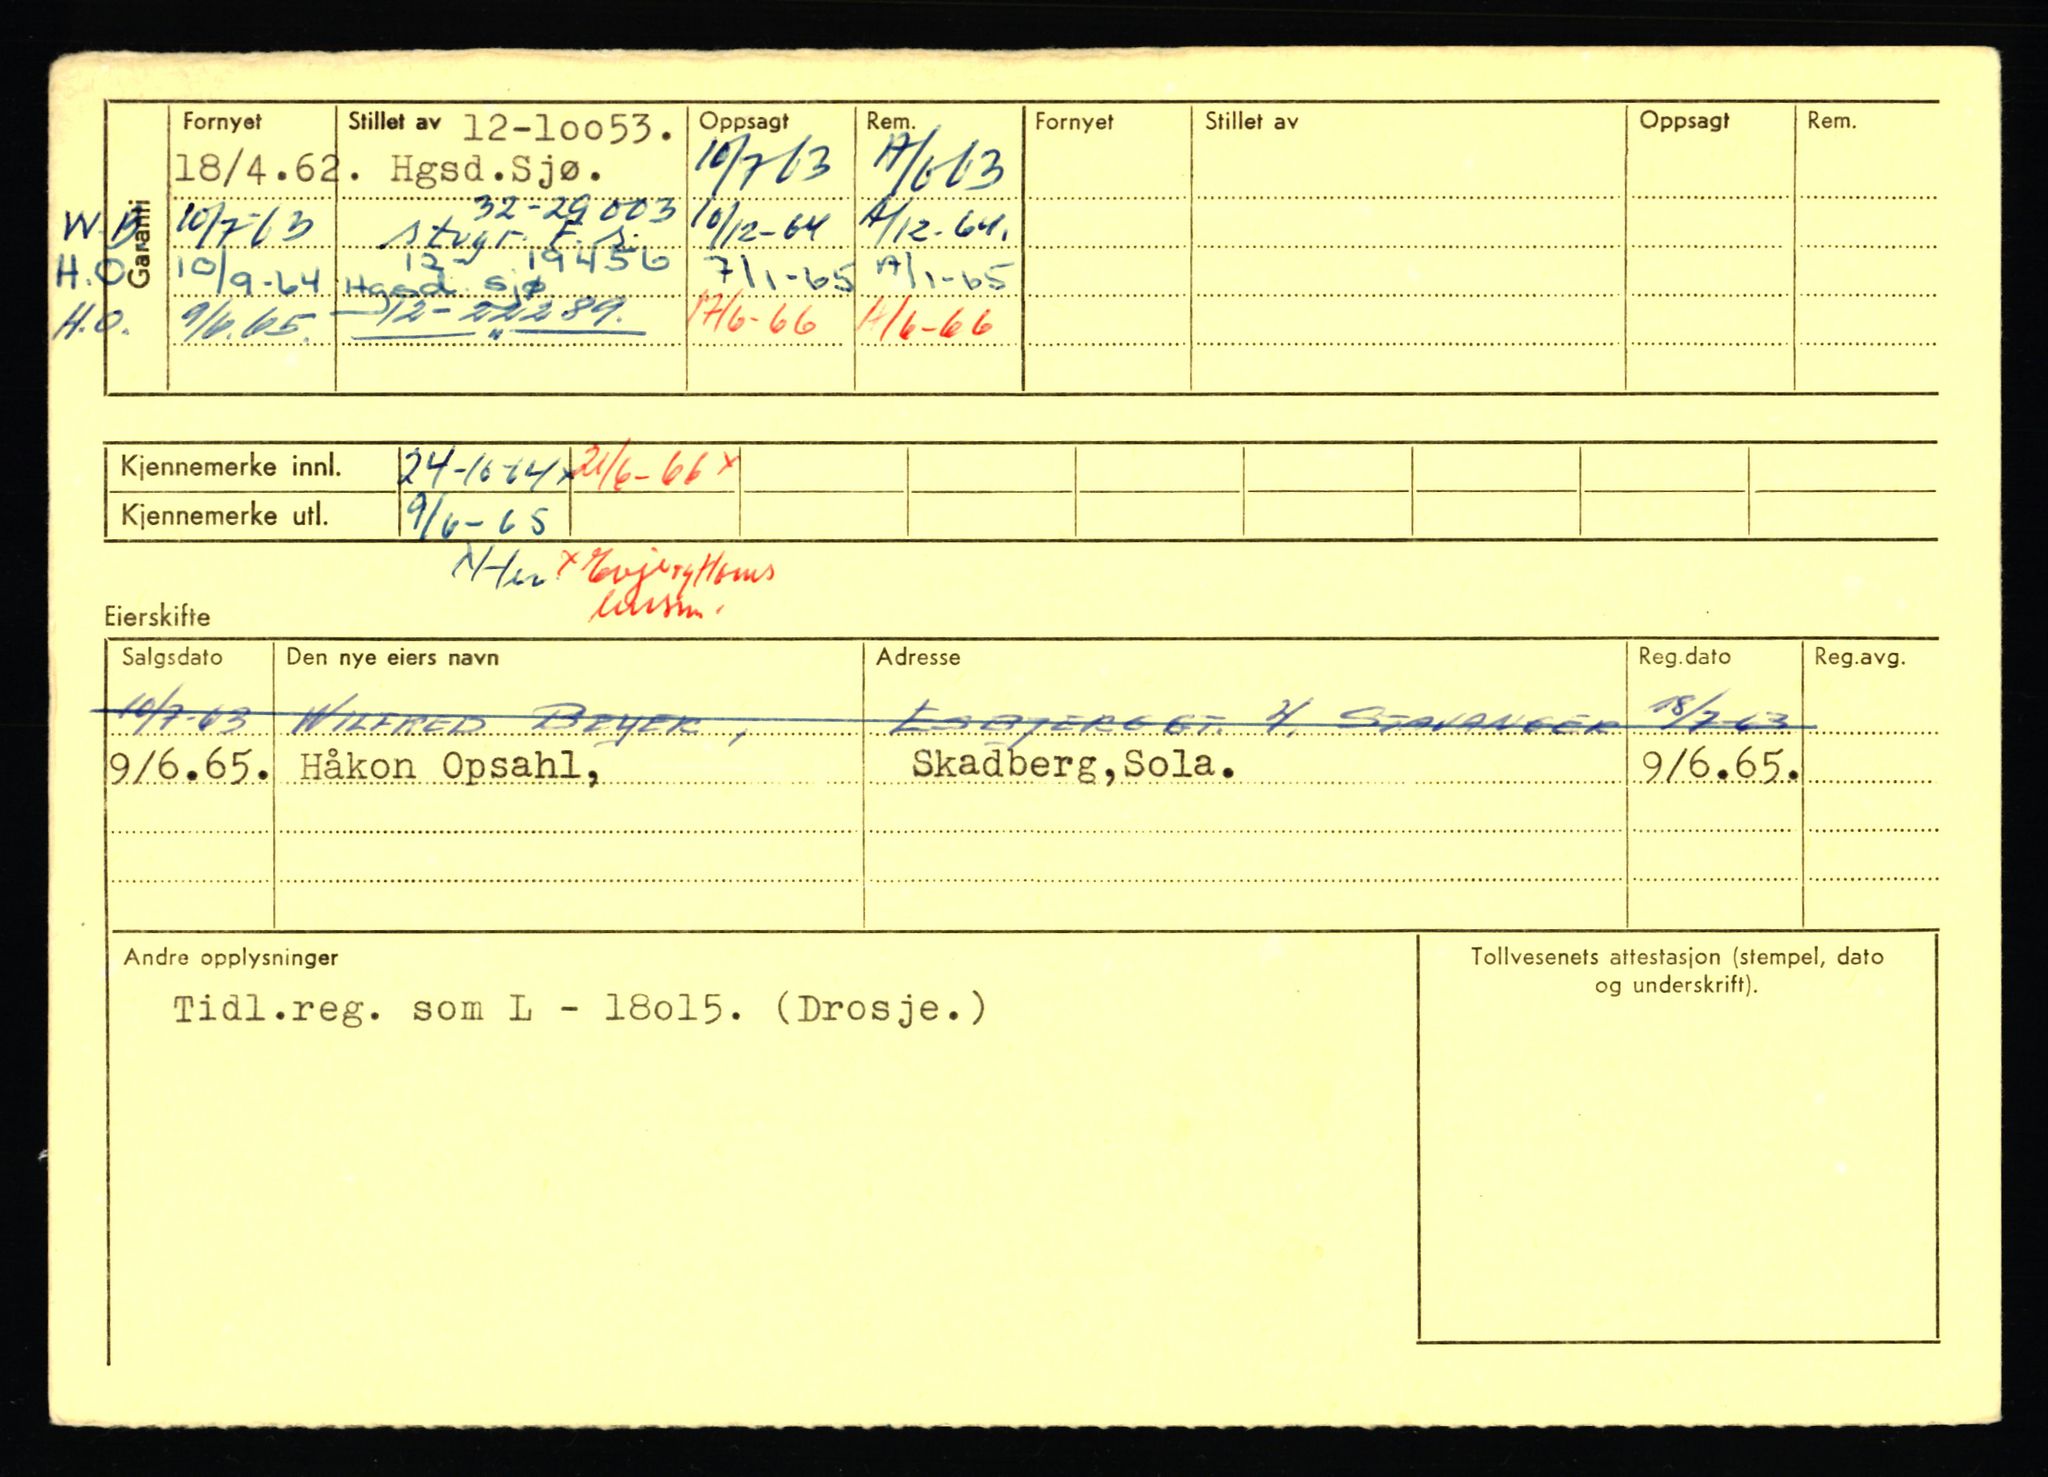 Garanti
Fornyet Stillet av 12-10053. Oppsagt Rem. Fornyet Stillet av Oppsagt Rem.
18/4.62. Hgsd.Sjø. 10/7-63 A/6-63
32-29003
W.B. 10/7-63 Stvgr. F.S. 10/12-64 A/12-64.
12-19456
H.O. 10/9-64 Hgsd. Sjø 7/1-65 A/1-65
H.O. 9/6.65. 12-22289. 17/6-66 A/6-66
— " —
Kjennemerke innl. 24-10-64x 21/6-66 x
Kjennemerke utl. 9/6-65
x
Eierskifte
Salgsdato Den nye eiers navn Adresse Reg.dato Reg.avg.
10/7-63 WILFRED BEYER, ESBJERGGT. 4, STAVANGER 18/7-63
9/6.65. Håkon Opsahl, Skadberg,Sola. 9/6.65.
Andre opplysninger
Tidl.reg. som L - 18o15. (Drosje.)
Tollvesenets attestasjon (stempel, dato
og underskrift).